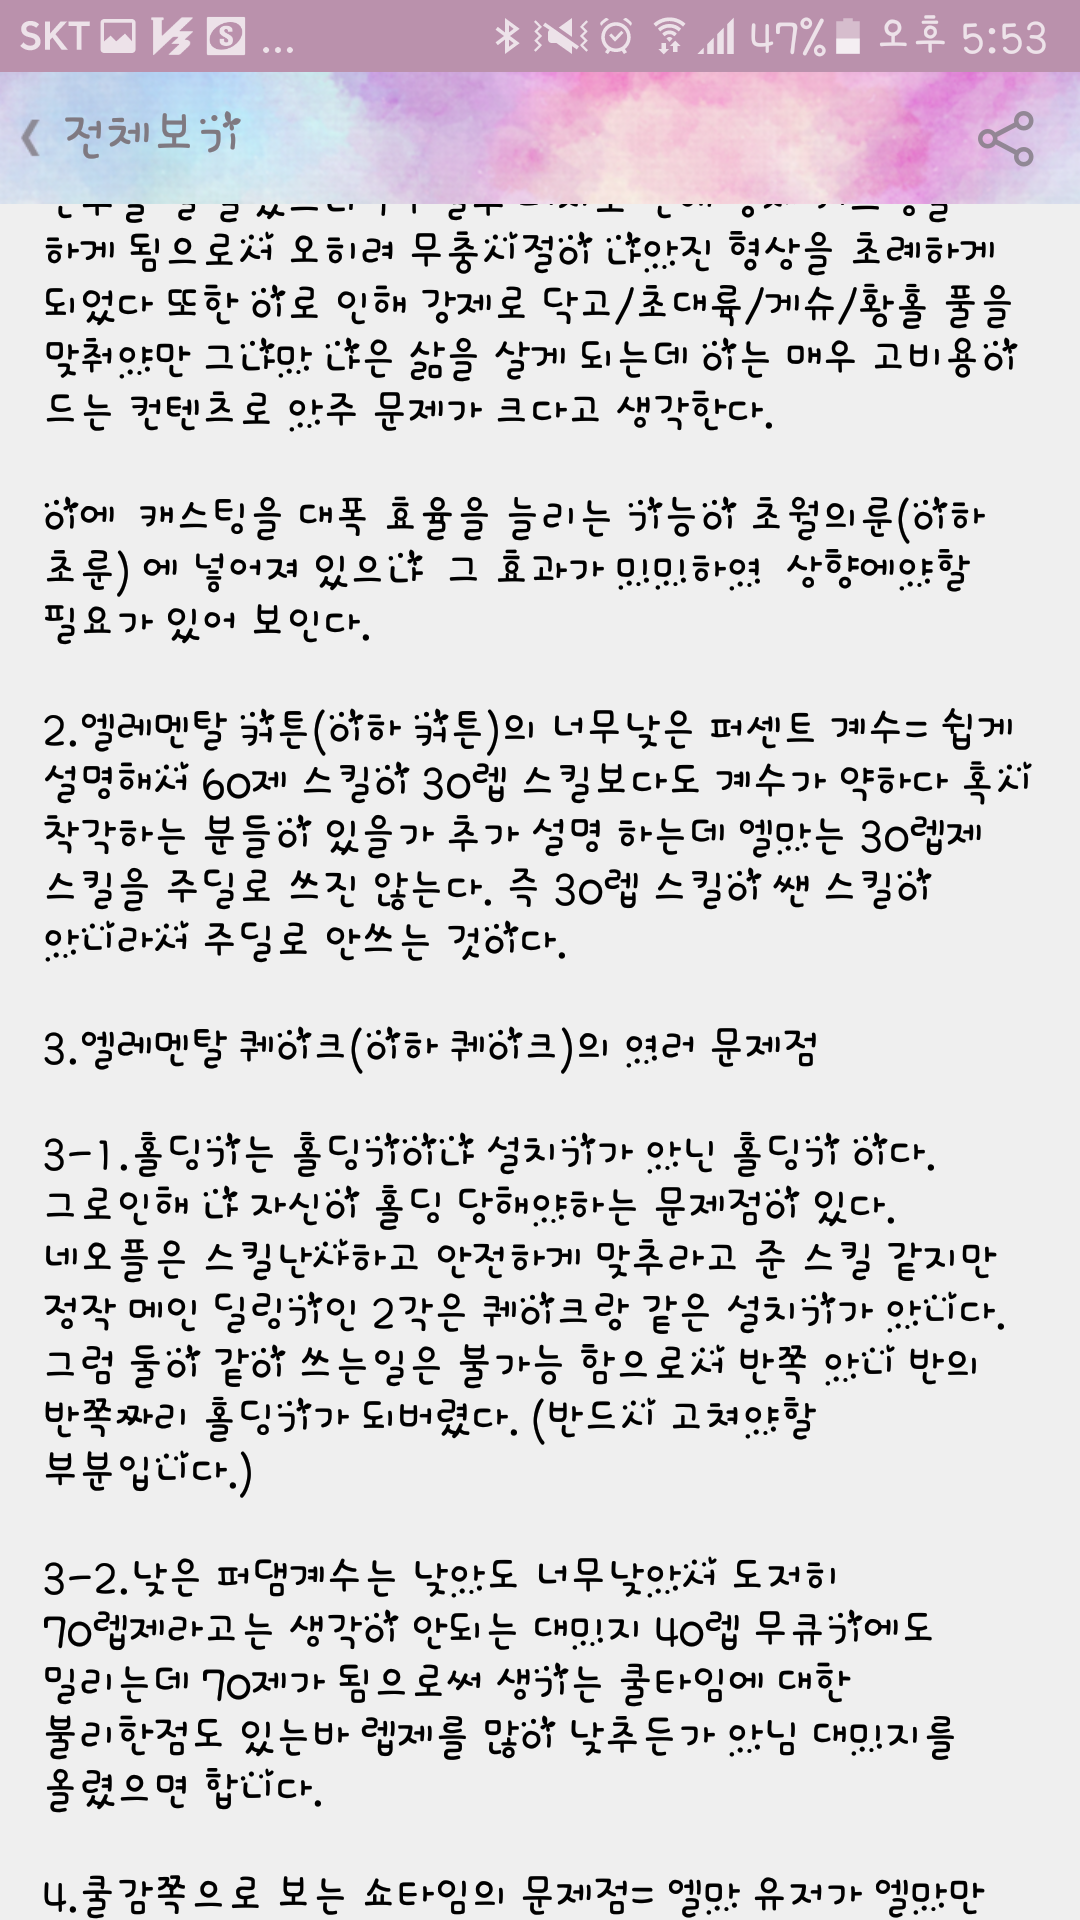 SKT ... 47% 오후 5:53
전체보기
하게 됨으로서 오히려 무충시절이 나아진 형상을 초례하게
되었다 또한 이로 인해 강제로 닥고/초대륙/게슈/황홀 풀을
맞춰야만 그나마 나은 삶을 살게 되는데 이는 매우 고비용이
드는 컨텐츠로 아주 문제가 크다고 생각한다.
이에 캐스팅을 대폭 효율을 늘리는 기능이 초월의룬(이하
초룬) 에 넣어져 있으나 그 효과가 미미하여 상향에야할
필요가 있어 보인다.
2.엘레멘탈 커튼(이하 커튼)의 너무낮은 퍼센트 계수= 쉽게
설명해서 60제 스킬이 30렙 스킬보다도 계수가 약하다 혹시
착각하는 분들이 있을가 추가 설명 하는데 엘마는 30렙제
스킬을 주딜로 쓰진 않는다. 즉 30렙 스킬이 쌘 스킬이
아니라서 주딜로 안쓰는 것이다.
3.엘레멘탈 퀘이크(이하 퀘이크)의 여러 문제점
3-1.홀딩기는 홀딩기이나 설치기가 아닌 홀딩기 이다.
그로인해 나 자신이 홀딩 당해야하는 문제점이 있다.
네오플은 스킬난사하고 안전하게 맞추라고 준 스킬 같지만
정작 메인 딜링기인 2각은 퀘이크랑 같은 설치기가 아니다.
그럼 둘이 같이 쓰는일은 불가능 함으로서 반쪽 아니 반의
반쪽짜리 홀딩기가 되버렸다. (반드시 고쳐야할
부분입니다.)
3-2.낮은 퍼댐계수는 낮아도 너무낮아서 도저히
70렙제라고는 생각이 안되는 대미지 40렙 무큐기에도
밀리는데 70제가 됨으로써 생기는 쿨타임에 대한
불리한점도 있는바 렙제를 많이 낮추든가 아님 대미지를
올렸으면 합니다.
4.쿨감쪽으로 보는 쇼타임의 문제점= 엘마 유저가 엘마만